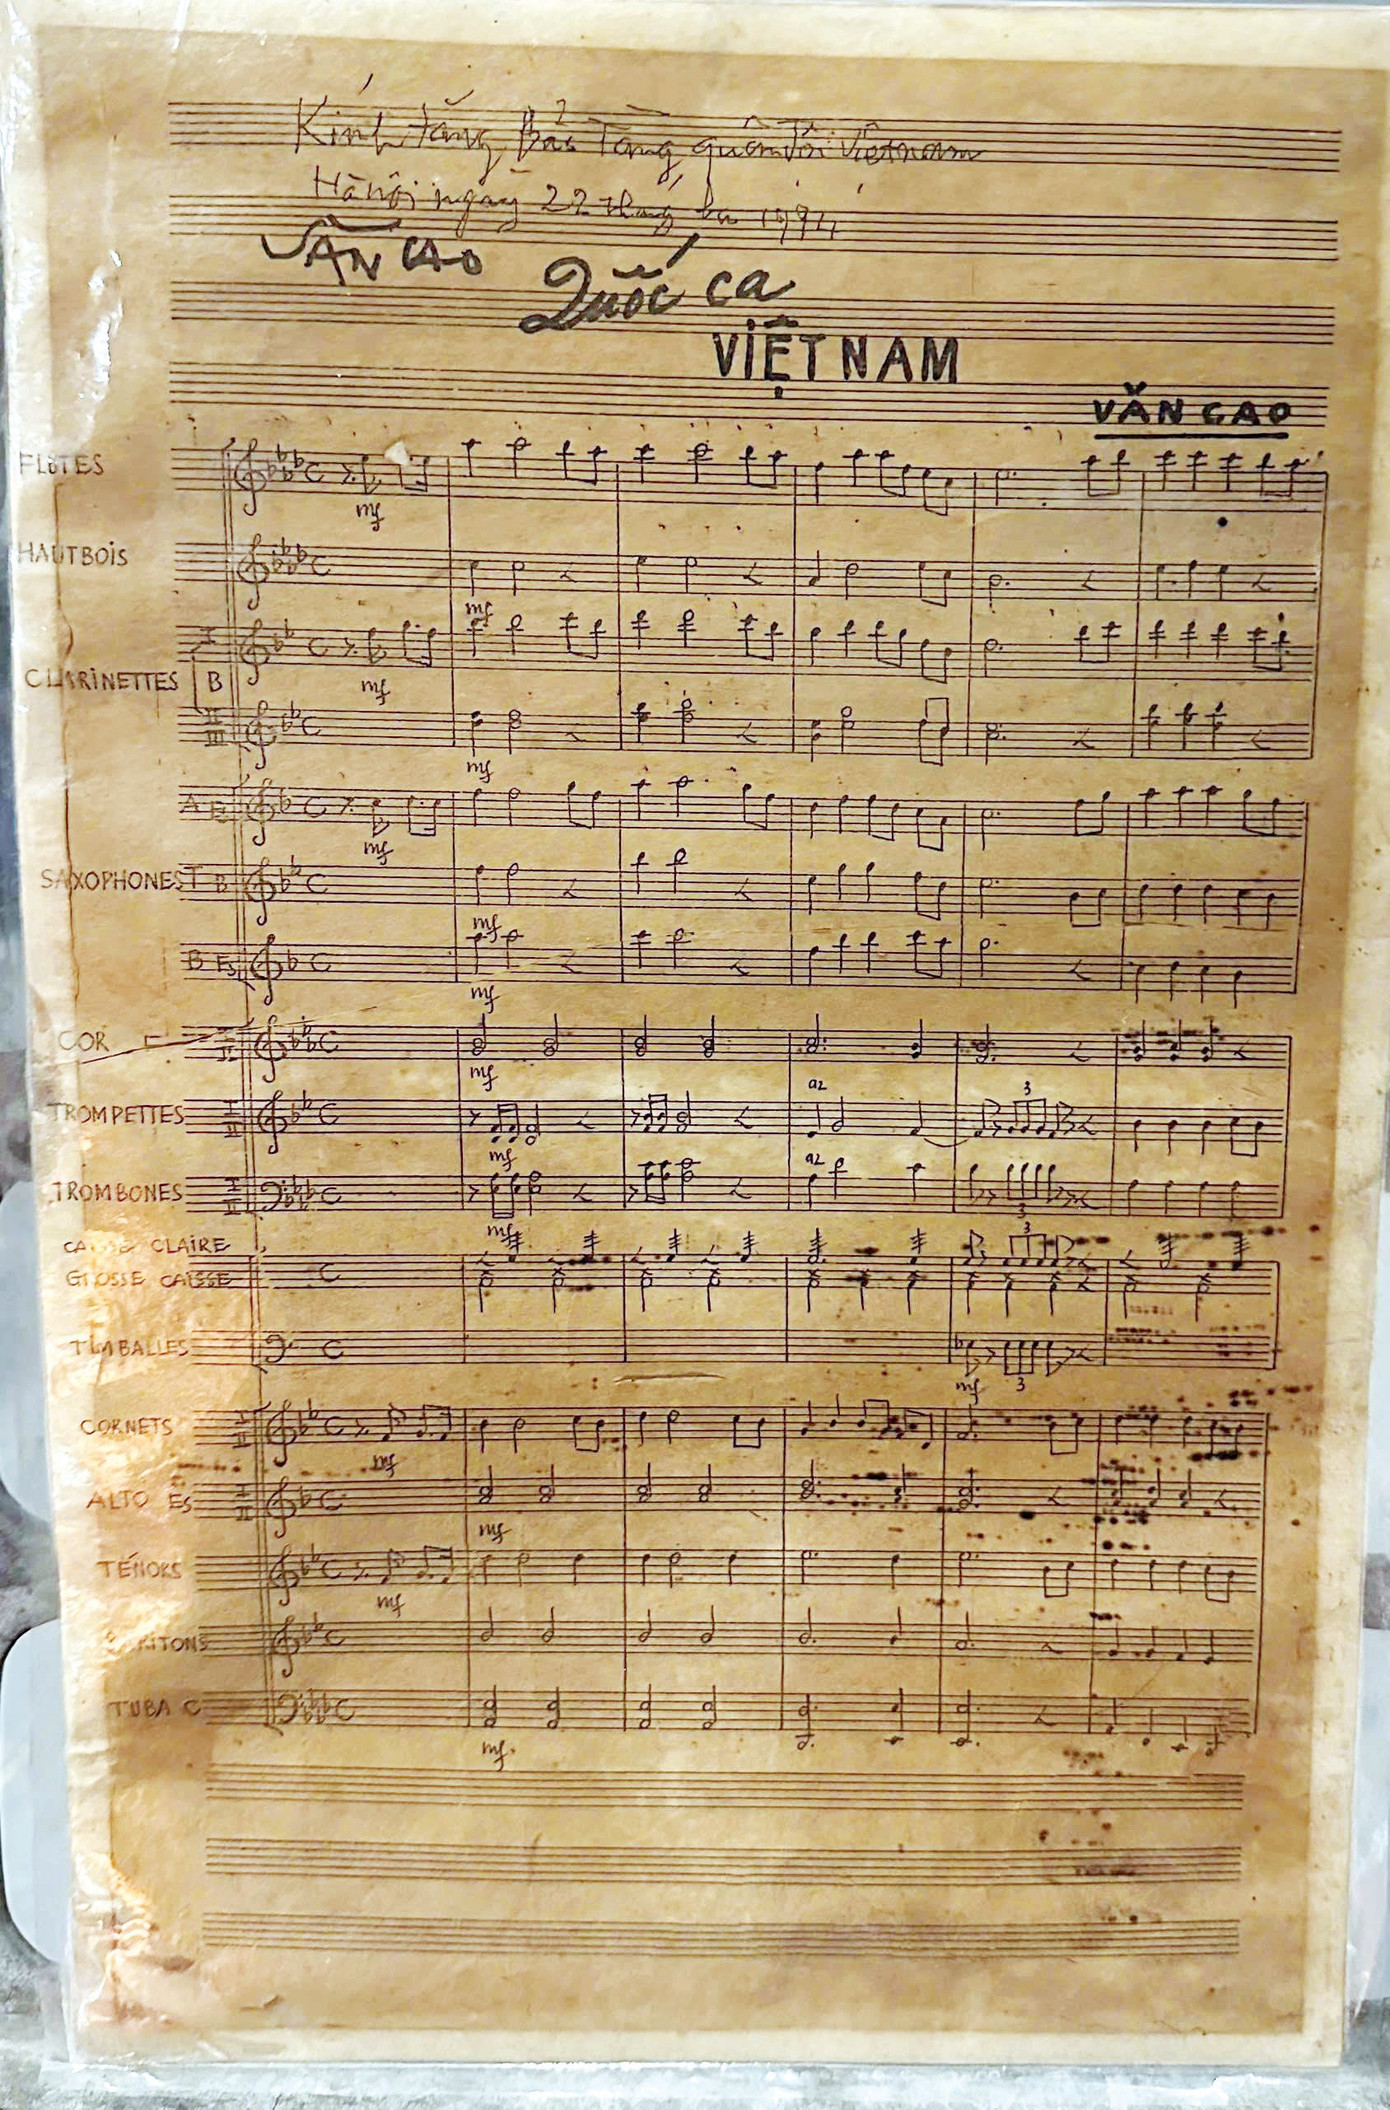 Kính tặng Bảo Tàng quân đội Việtnam
Hà nội ngày 22 tháng ba 1994
VĂN CAO
Quốc ca
VIỆT NAM
VĂN CAO
FLÛTES
mf
HAUTBOIS
mf
I
CLARINETTES B
mf
II
III
mf
A Es
mf
SAXOPHONES T B
mf
B Es
mf
COR F I II
mf
a2
TROMPETTES I II
3
mf
a2
TROMBONES I II
mf
3
CAISSE CLAIRE
3
GROSSE CAISSE
TIMBALLES
mf
3
CORNETS I II
mf
ALTO Es I II
mf
TÉNORS
mf
BARITONS
TUBA C
mf.